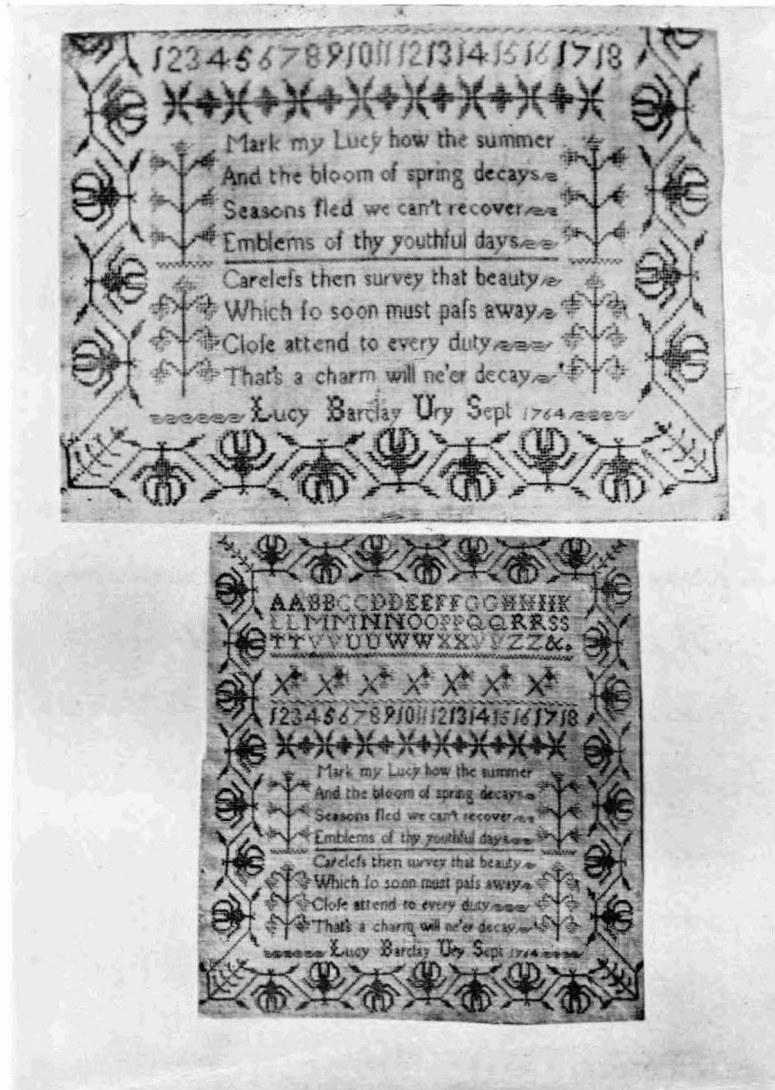 123456789101112131415161718
Mark my Lucy how the summer
And the bloom of spring decays
Seasons fled we can't recover
Emblems of thy youthful days
Careleſs then survey that beauty
Which ſo soon must paſs away
Cloſe attend to every duty
That's a charm will ne'er decay
Lucy Barclay Ury Sept 1764
AABBCCDDEEFFGGHHIIK
LLMMNNOOPPQQRRSS
TTVVUUWWXXYYZZ&.
123456789101112131415161718
Mark my Lucy how the summer
And the bloom of spring decays
Seasons fled we can't recover
Emblems of thy youthful days
Careleſs then survey that beauty
Which ſo soon must paſs away
Cloſe attend to every duty
That's a charm will ne'er decay
Lucy Barclay Ury Sept 1764